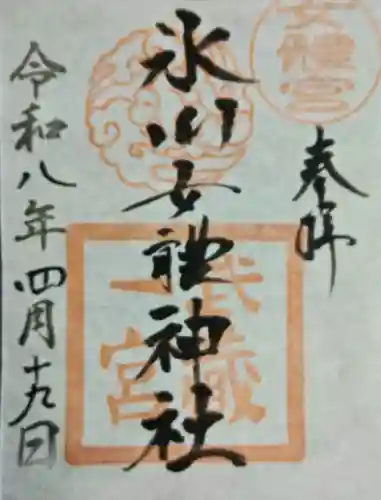 奉拝
氷川女體神社
武蔵
一宮
女體宮
令和八年四月十九日